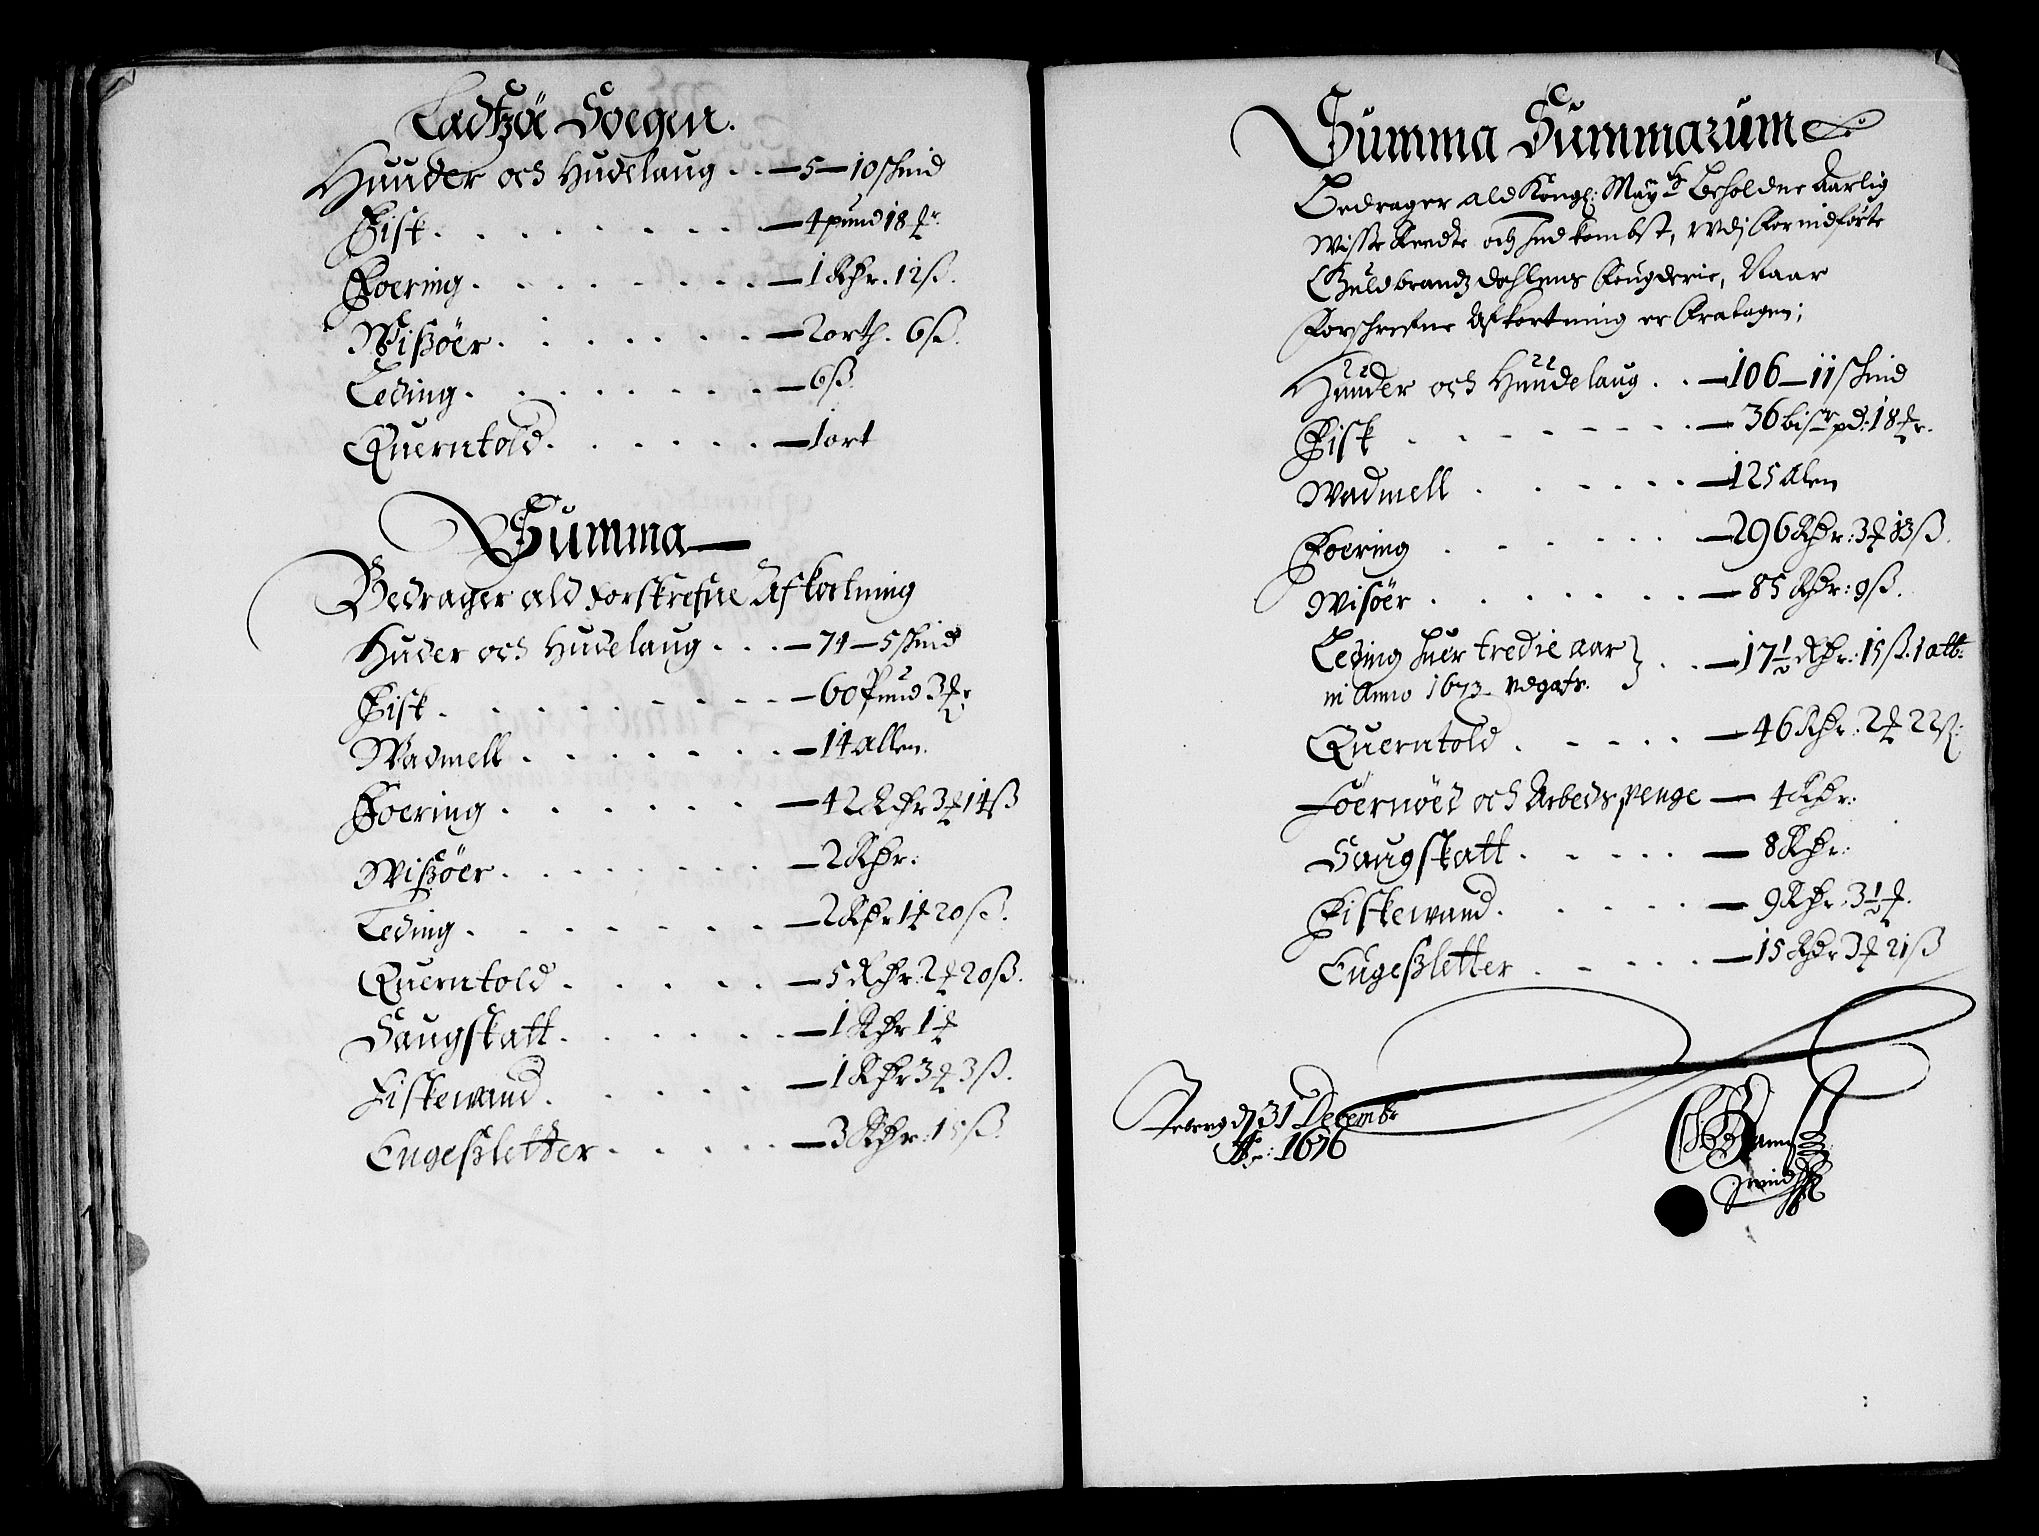 Ladtzöe Soegen.
Huuder och Hudelaug . . — 5 — 10 skind
Fisk . . . . . . . . — 4 pund 18 ℔r
Foering . . . . . . . — 1 Rdr. 12 ß.
Wißöer . . . . . . . — 2 orth. 6 ß.
Leding . . . . . . . — 6 ß.
Querntold . . . . . — 1 ort
Summa
Bedrager ald forskrefne Afkortning
Huder och Hudelaug . . . — 74 — 5 skind
Fisk . . . . . . . . — 60 Pund 3 ℔r
Wadmell . . . . . . — 14 allen.
Foering . . . . . . — 42 Rdr 3 ℔ 14 ß
Wißöer . . . . . . . — 2 Rdr:
Leding . . . . . . . — 2 Rdr 1 ℔ 20 ß.
Querntold . . . . . — 5 Rdr. 2 ℔ 20 ß.
Saugskatt . . . . . . — 1 Rdr 1 ℔
Fiskewand . . . . . — 1 Rdr 3 ℔ 3 ß.
Engeßletter . . . . . — 3 Rdr: 15 ß.
Summa Summarum
Bedrager ald Kongl: Mayts Beholdne Aarlig
Wisse Rendte och Indkombst, udj forindførte
Guldbrandzdahlens fougderie, Naar
forschrefne Afkortning er fratagen;
Huuder och Huudelaug . . — 106 — 11 skind
Fisk . . . . . . . . — 36 bismr pd: 18 ℔r.
Wadmell . . . . . . — 125 Alen
Foering . . . . . . — 296 Rdr: 3 ℔ 13 ß.
Wisöer . . . . . . . — 85 Rdr: 9 ß.
Leding huer tredie aar } . . — 17 ½ Rdr: 15 ß. 1 alb:
in Anno 1673 udgafs.
Querntold . . . . . — 46 Rdr: 2 ℔ 22 ß:
Foernöed och Arbedspenge — 4 Rdr:
Saugskatt . . . . . — 8 Rdr:
Fiskewand . . . . . — 9 Rdr: 3 ½ ℔.
Engeßletter . . . . . — 15 Rdr 3 ℔ 21 ß
d 31 Decembr
Ao: 1676